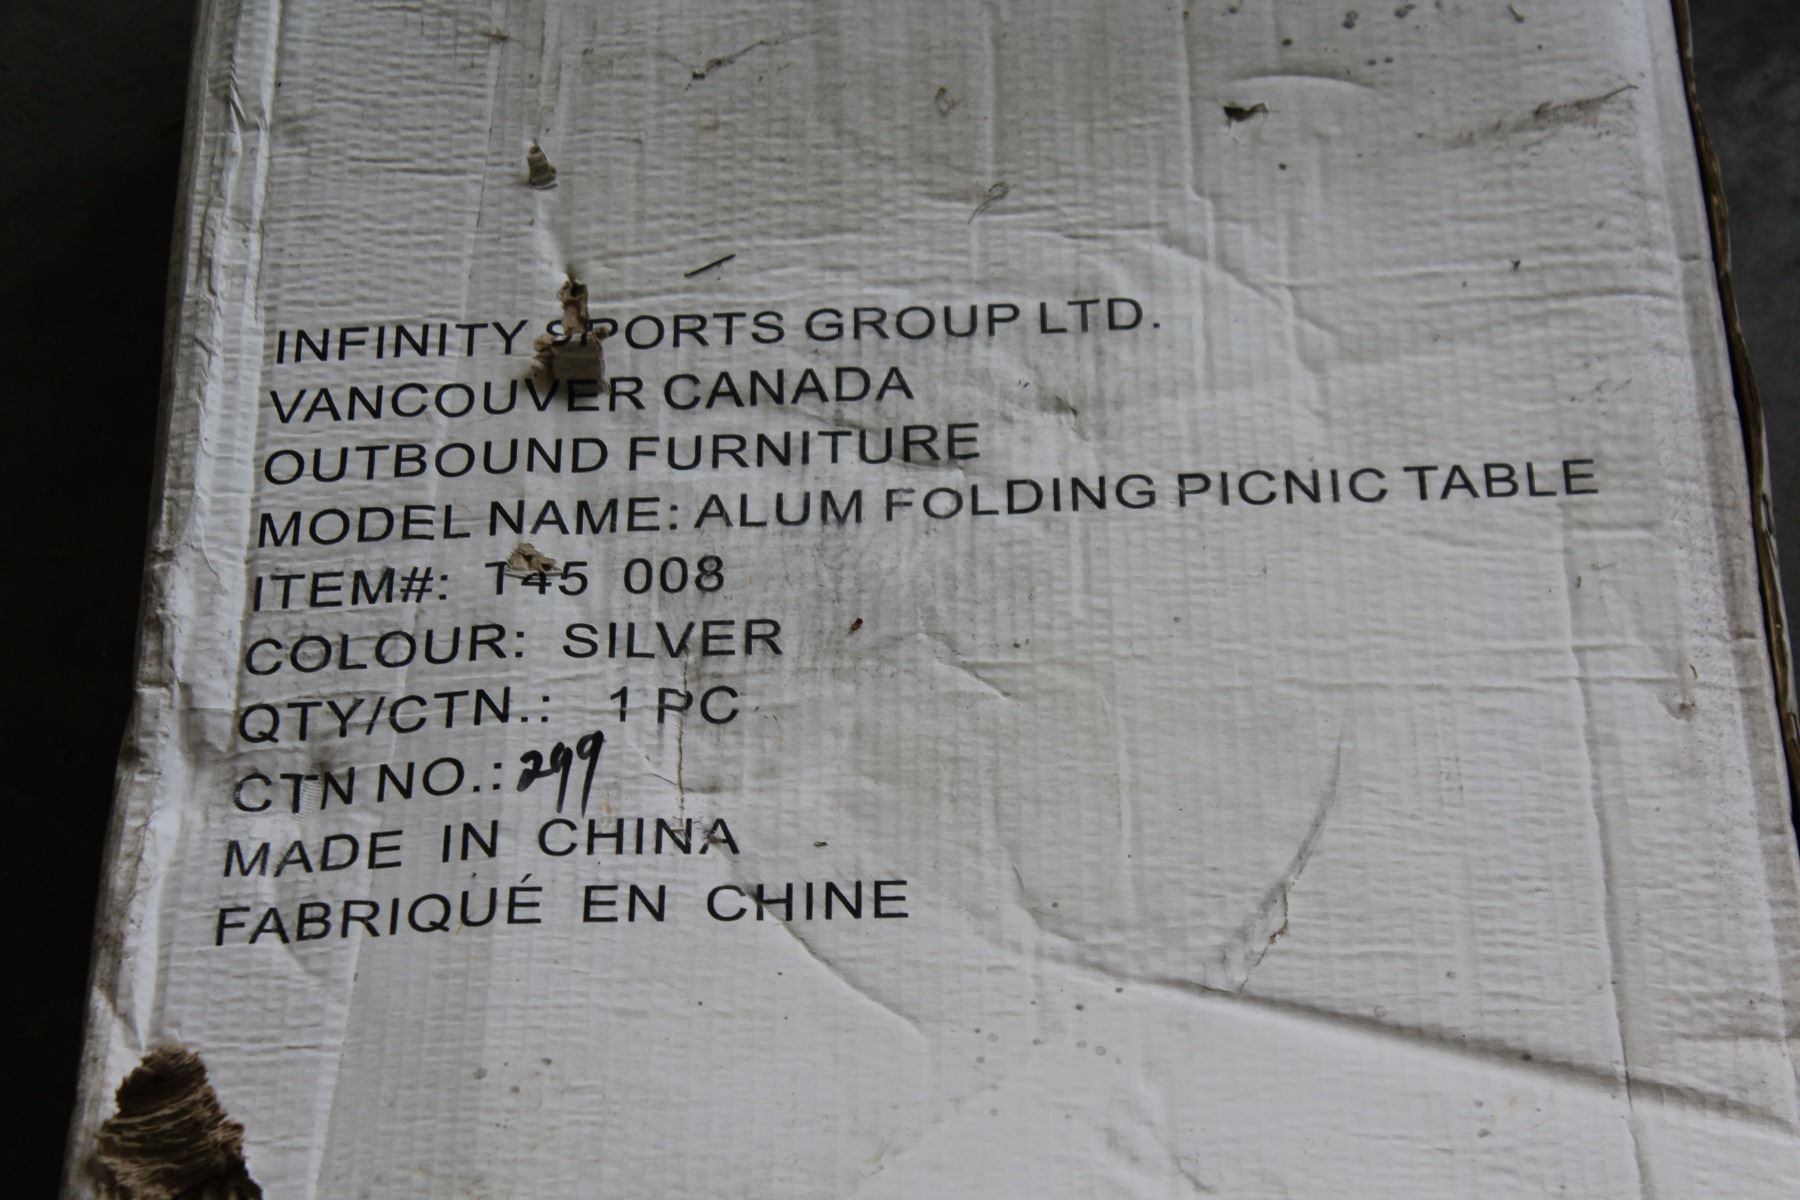 INFINITY SPORTS GROUP LTD.
VANCOUVER CANADA
OUTBOUND FURNITURE
MODEL NAME: ALUM FOLDING PICNIC TABLE
ITEM#: T45 008
COLOUR: SILVER
QTY/CTN.: 1 PC
CTN NO.: 299
MADE IN CHINA
FABRIQUÉ EN CHINE